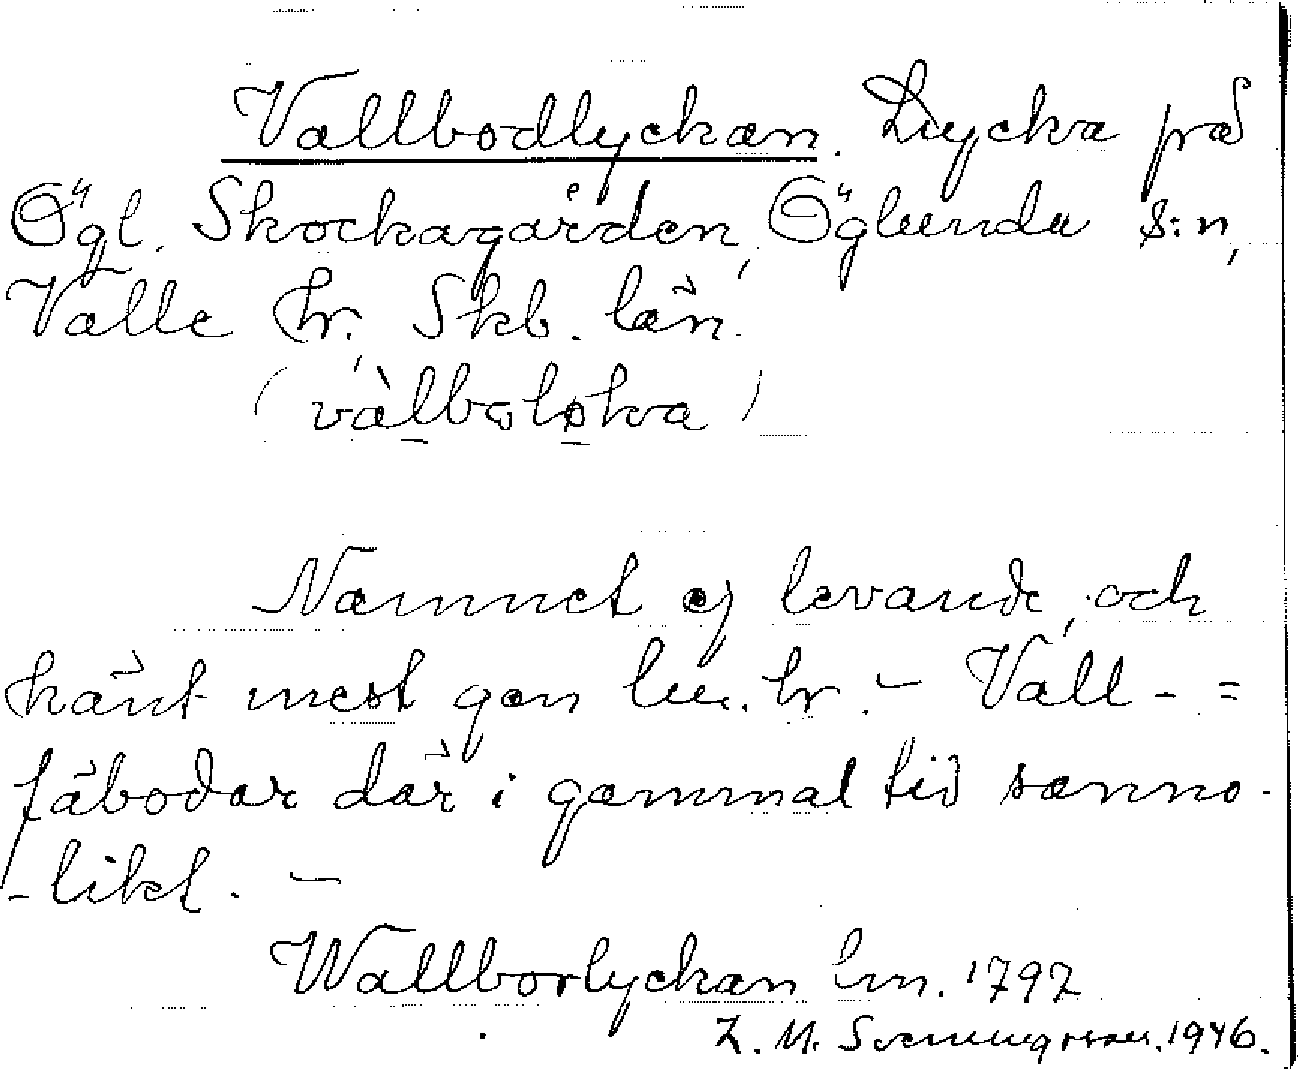 Vallbodlyckan. Lycka på
Ögl. Skockagården, Öglunda s:n,
Valle hr. Skb. län.
(vàlbolo̱ka)
Namnet ej levande, och
känt mest gen lm. hr. – Vall- =
fäbodar där i gammal tid sanno-
-likt. –
Wallborlyckan lm. 1792
Z. M. Svenungsson. 1946.